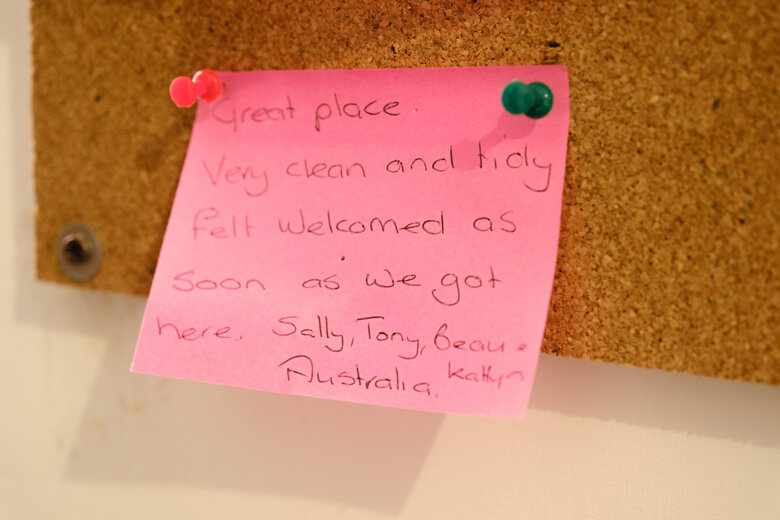 Great place.
Very clean and tidy
felt welcomed as
soon as we got
here. Sally, Tony, Beau &
Australia. Katlyn